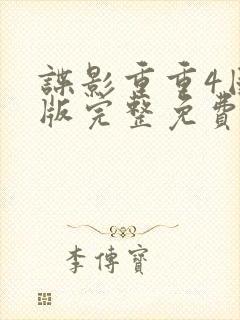 諜影重重4
版完整免費
李傳寶